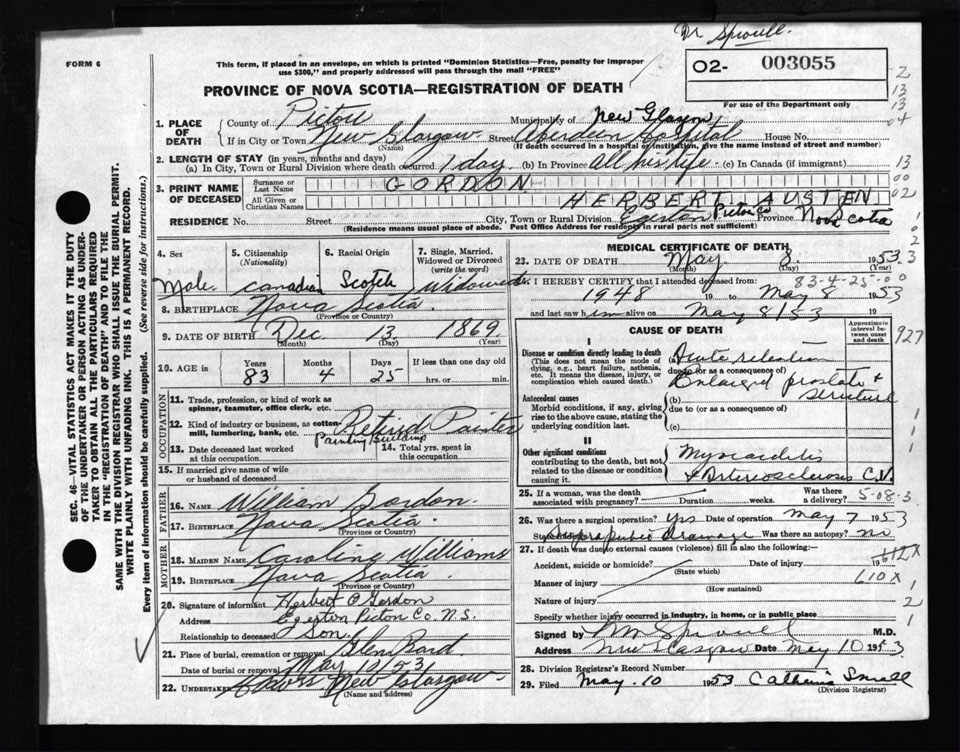 Dr Sproull.
FORM 6
This form, if placed in an envelope, on which is printed "Dominion Statistics—Free, penalty for improper
use $300," and properly addressed will pass through the mail "FREE"
O2- 003055
For use of the Department only
PROVINCE OF NOVA SCOTIA—REGISTRATION OF DEATH
1. PLACE OF DEATH County of Pictou Municipality of New Glasgow
If in City or Town New Glasgow Street Aberdeen Hospital House No.
(Name) (If death occurred in a hospital or institution, give the name instead of street and number)
2. LENGTH OF STAY (in years, months and days)
(a) In City, Town or Rural Division where death occurred 1 day. (b) In Province all his life. (c) In Canada (if immigrant)
3. PRINT NAME OF DECEASED Surname or Last Name GORDON
All Given or Christian Names HERBERT AUSTEN
RESIDENCE No. Street City, Town or Rural Division Egerton Pictou Co Province Nova Scotia
(Residence means usual place of abode. Post Office Address for residents in rural parts not sufficient)
4. Sex Male
5. Citizenship (Nationality) Canadian
6. Racial Origin Scotch
7. Single, Married, Widowed or Divorced (write the word) Widowed
8. BIRTHPLACE Nova Scotia
(Province or Country)
9. DATE OF BIRTH Dec. 13 1869
(Month) (Day) (Year)
10. AGE in Years 83 Months 4 Days 25 If less than one day old hrs. or min.
OCCUPATION
11. Trade, profession, or kind of work as spinner, teamster, office clerk, etc. Retired Painter
12. Kind of industry or business, as cotton-mill, lumbering, bank, etc. Painting Buildings
13. Date deceased last worked at this occupation
14. Total yrs. spent in this occupation
15. If married give name of wife or husband of deceased
FATHER
16. Name William Gordon.
17. Birthplace Nova Scotia
(Province or Country)
MOTHER
18. Maiden Name Caroline Williams
19. Birthplace Nova Scotia.
(Province or Country)
20. Signature of informant Herbert O Gordon
Address Egerton Pictou Co. N.S.
Relationship to deceased Son.
21. Place of burial, cremation or removal
Date of burial or removal May 10/53
22. Undertaker New Glasgow
(Name and address)
MEDICAL CERTIFICATE OF DEATH
23. DATE OF DEATH May 8. 1953
(Month) (Day)
I HEREBY CERTIFY that I attended deceased from: 83-4-25-00
1948 19 to May 8 1953
and last saw him alive on May 8/53 19
CAUSE OF DEATH
Approximate interval between onset and death
I
Disease or condition directly leading to death
(This does not mean the mode of dying, e.g., heart failure, asthenia, etc. It means the disease, injury, or complication which caused death.)
(a) Acute retention
due to (or as a consequence of)
Antecedent causes
Morbid conditions, if any, giving rise to the above cause, stating the underlying condition last.
(b) Enlarged prostate + stricture
due to (or as a consequence of)
(c)
II
Other significant conditions
contributing to the death, but not related to the disease or condition causing it.
Myocarditis
+ Arteriosclerosis C.V.
927
25. If a woman, was the death associated with pregnancy? Duration weeks. Was there a delivery? 5-08-3
26. Was there a surgical operation? Yes Date of operation May 7 1953
State findings Suprapubic drainage Was there an autopsy? no
27. If death was due to external causes (violence) fill in also the following:—
Accident, suicide or homicide? Date of injury 19
(State which)
612X
Manner of injury 610X
(How sustained)
Nature of injury
Specify whether injury occurred in industry, in home, or in public place
Signed by M Sproull M.D.
Address New Glasgow Date May 10 1953
28. Division Registrar's Record Number
29. Filed May. 10 1953 Catherine Small
(Division Registrar)
SEC. 46—VITAL STATISTICS ACT MAKES IT THE DUTY
OF THE UNDERTAKER OR PERSON ACTING AS UNDER-
TAKER TO OBTAIN ALL THE PARTICULARS REQUIRED
IN THE "REGISTRATION OF DEATH" AND TO FILE THE
SAME WITH THE DIVISION REGISTRAR WHO SHALL ISSUE THE BURIAL PERMIT.
WRITE PLAINLY WITH UNFADING INK. THIS IS A PERMANENT RECORD.
Every item of information should be carefully supplied. (See reverse side for instructions.)